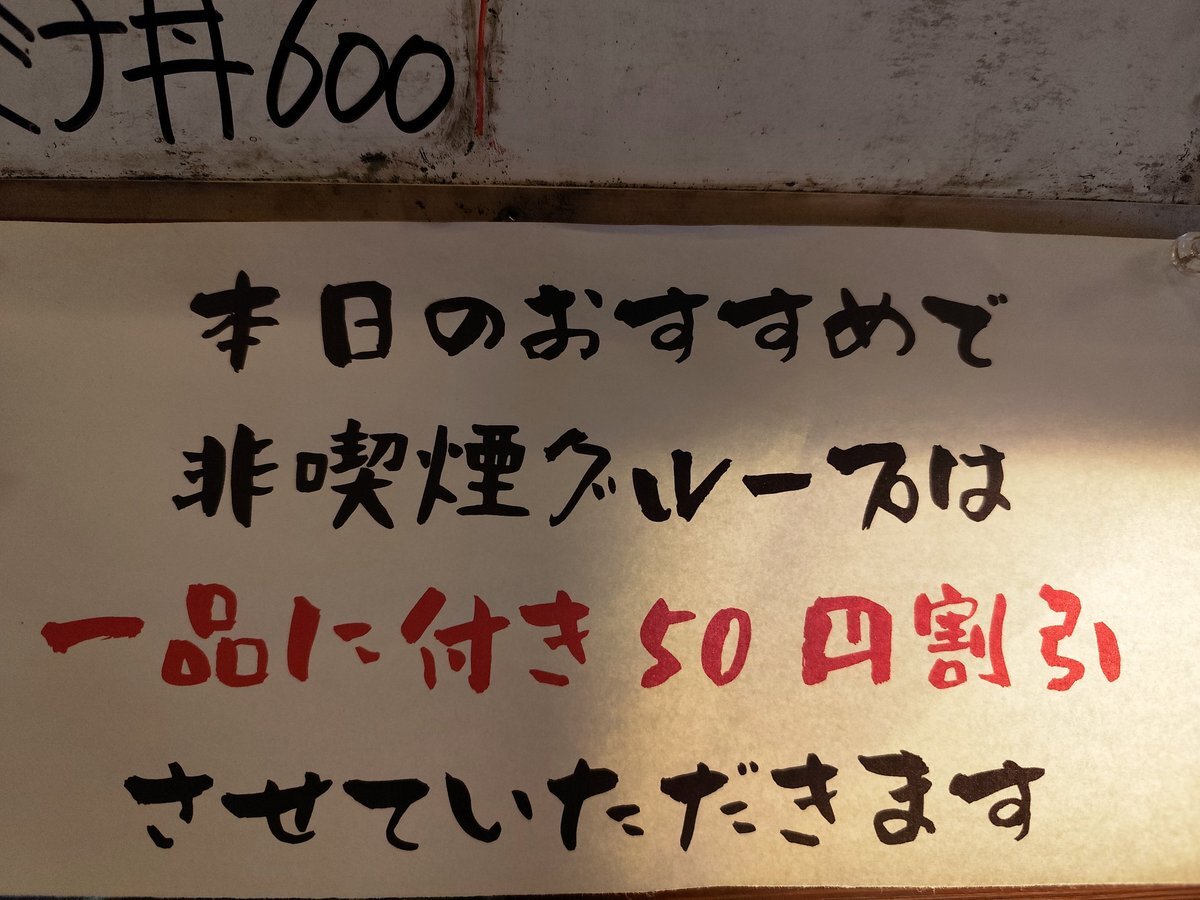 丼600
本日のおすすめで
非喫煙グループは
一品に付き50円割引
させていただきます